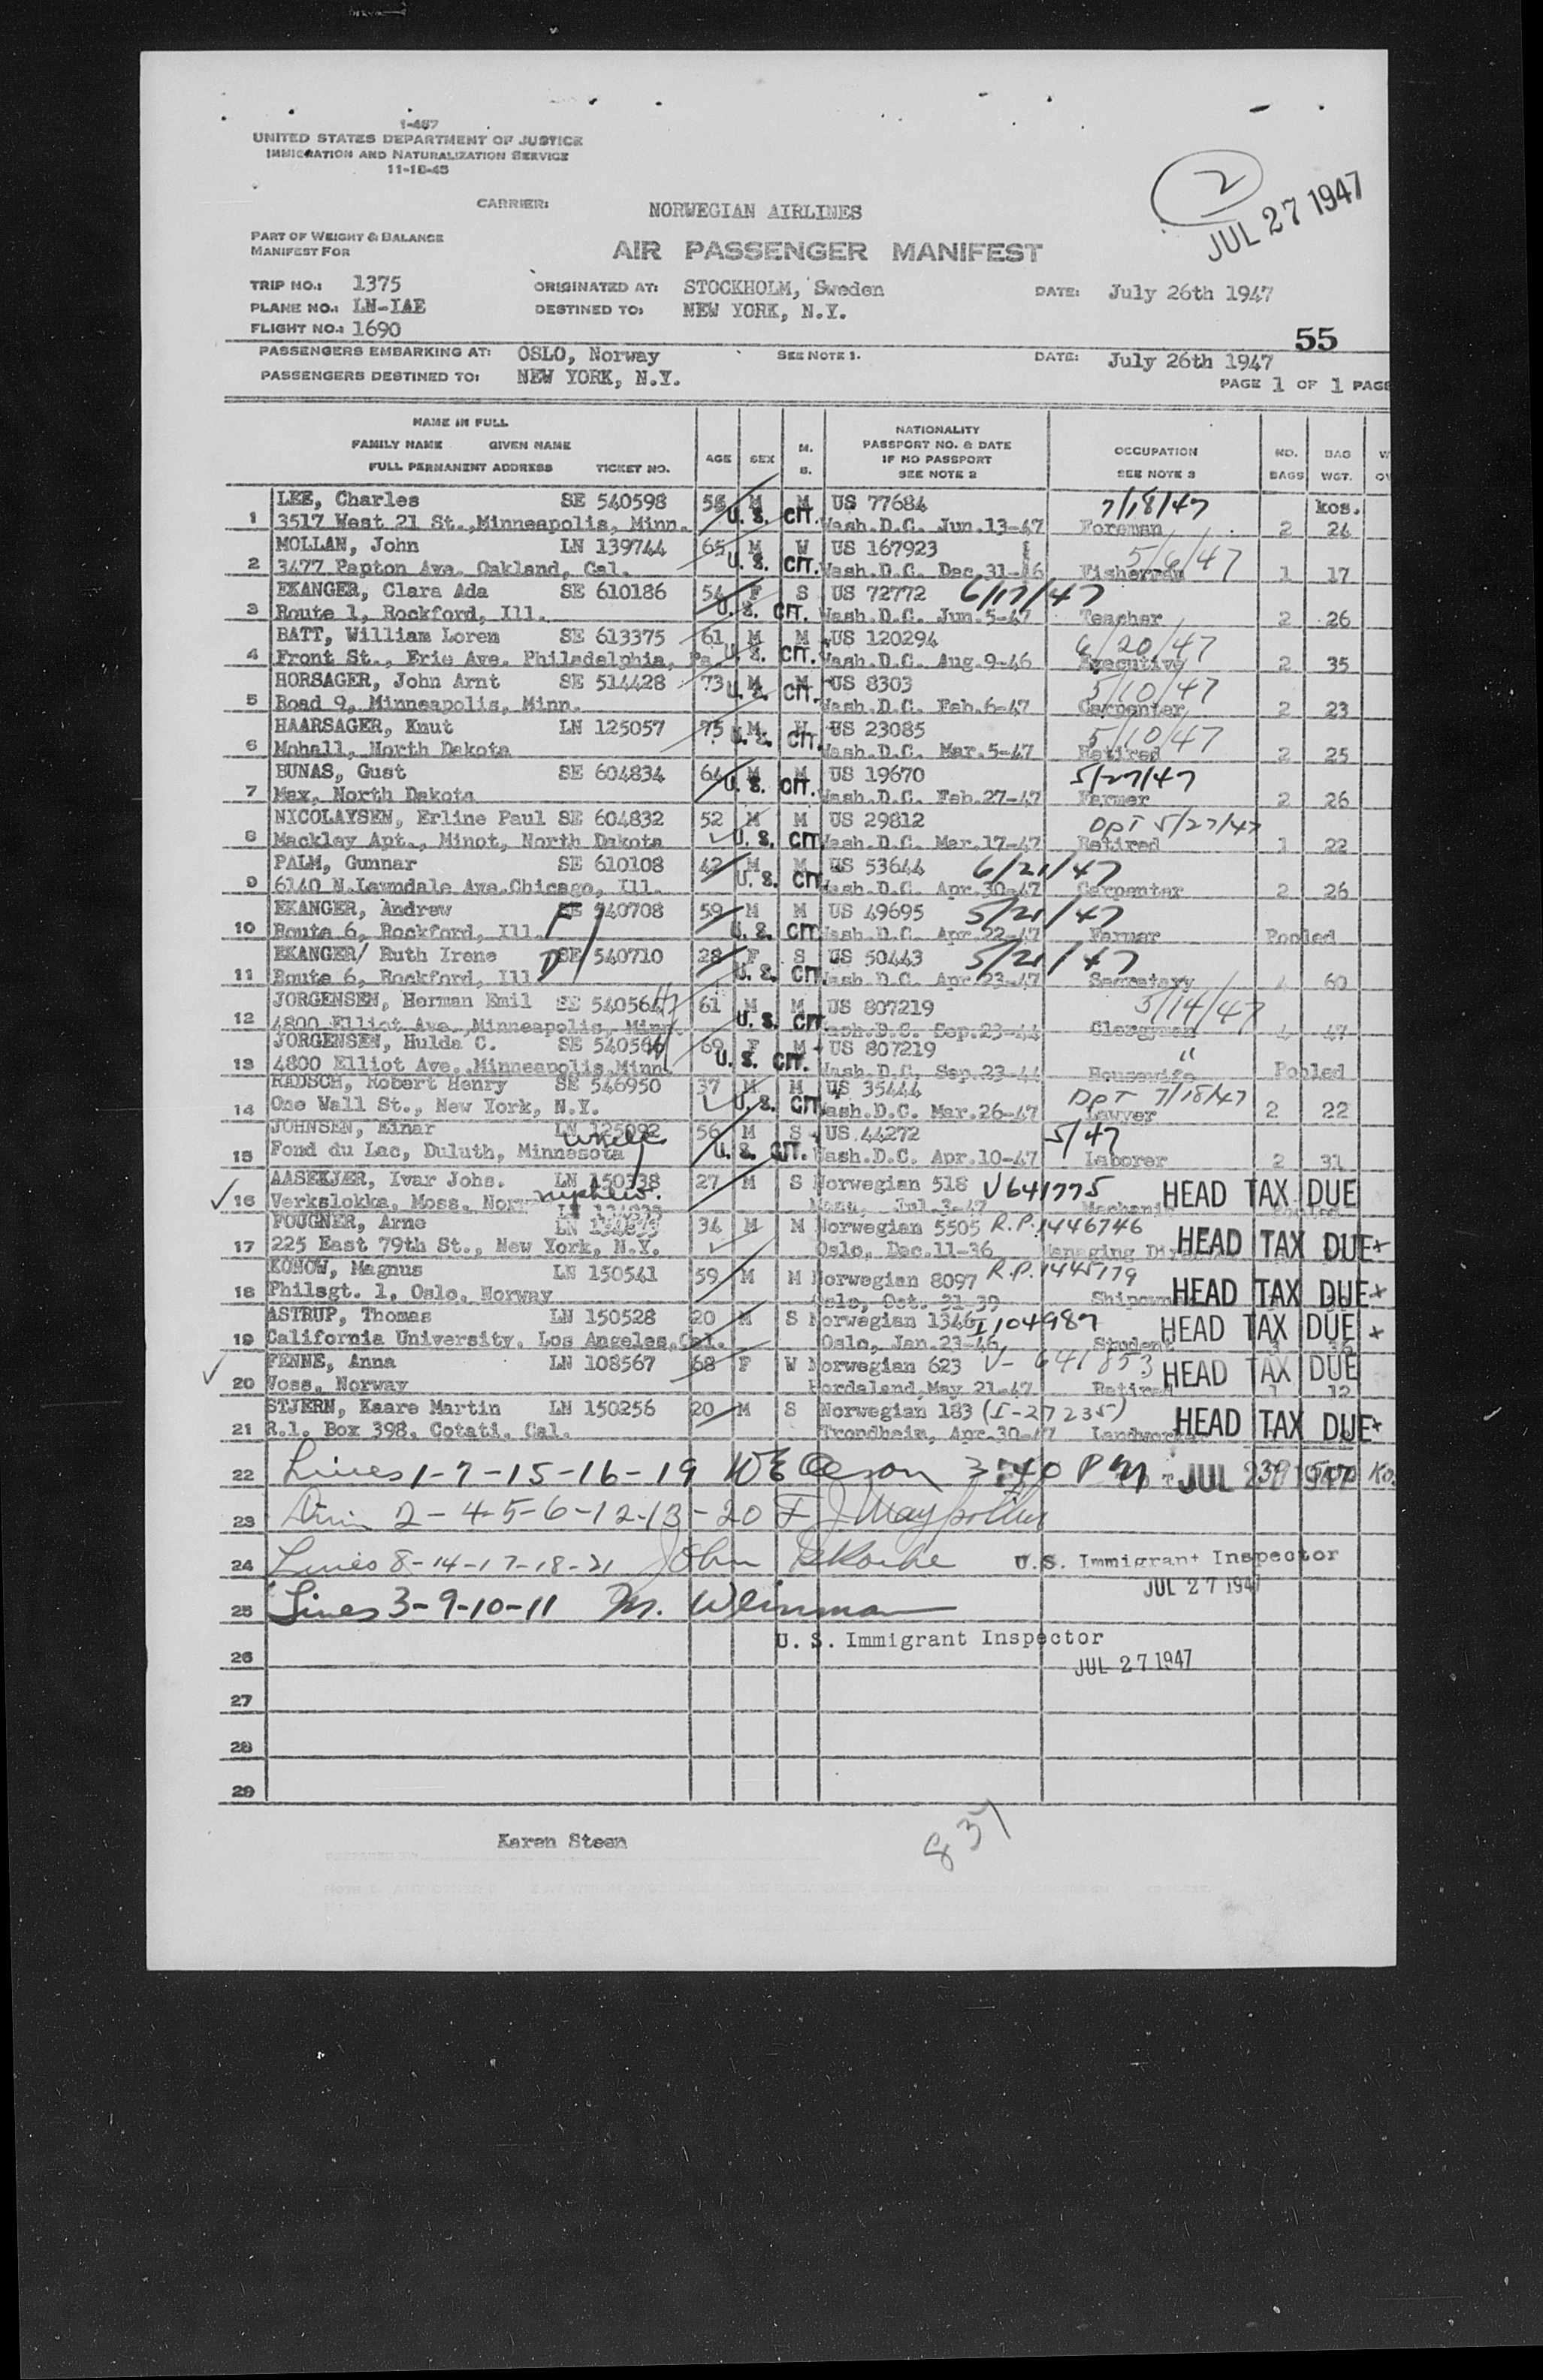 1-467
UNITED STATES DEPARTMENT OF JUSTICE
IMMIGRATION AND NATURALIZATION SERVICE
11-18-45
2
JUL 27 1947
CARRIER: NORWEGIAN AIRLINES
PART OF WEIGHT & BALANCE
MANIFEST FOR
AIR PASSENGER MANIFEST
TRIP NO.: 1375 ORIGINATED AT: STOCKHOLM, Sweden DATE: July 26th 1947
PLANE NO.: LN-IAE DESTINED TO: NEW YORK, N.Y.
FLIGHT NO.: 1690
55
PASSENGERS EMBARKING AT: OSLO, Norway SEE NOTE 1. DATE: July 26th 1947
PASSENGERS DESTINED TO: NEW YORK, N.Y.
PAGE 1 OF 1 PAGE
NAME IN FULL
FAMILY NAME GIVEN NAME
FULL PERMANENT ADDRESS TICKET NO.
AGE SEX M. S.
NATIONALITY
PASSPORT NO. & DATE
IF NO PASSPORT
SEE NOTE 2
OCCUPATION
SEE NOTE 3
NO. BAGS
BAG WGT.
LEE, Charles SE 540598 M M US 77684 7/18/47 kos.
1 3517 West 21 St., Minneapolis, Minn. U. S. CIT. Wash.D.C. Jun.13-47 Foreman 2 24
MOLLAN, John LN 139744 65 M W US 167923 5/6/47
2 3477 Papton Ave. Oakland, Cal. U. S. CIT. Wash.D.C. Dec.31-46 Fisherman 1 17
EKANGER, Clara Ada SE 610186 54 F S US 72772 6/17/47
3 Route 1, Rockford, Ill. U. S. CIT. Wash.D.C. Jun.5-47 Teacher 2 26
BATT, William Loren SE 613375 61 M M US 120294 6/20/47
4 Front St., Erie Ave. Philadelphia, Pa U. S. CIT. Wash.D.C. Aug.9-46 Executive 2 35
HORSAGER, John Arnt SE 514428 73 M M US 8303 5/10/47
5 Road 9, Minneapolis, Minn. U. S. CIT. Wash.D.C. Feb.6-47 Carpenter 2 23
HAARSAGER, Knut LN 125057 75 M W US 23085 5/10/47
6 Mohall, North Dakota U. S. CIT. Wash.D.C. Mar.5-47 Retired 2 25
BUNAS, Gust SE 604834 64 M M US 19670 5/27/47
7 Max, North Dakota U. S. CIT. Wash.D.C. Feb.27-47 Farmer 2 26
NICOLAYSEN, Erline Paul SE 604832 52 M M US 29812 DPT 5/27/47
8 Mackley Apt., Minot, North Dakota U. S. CIT Wash.D.C. Mar.17-47 Retired 1 22
PALM, Gunnar SE 610108 42 M M US 53644 6/21/47
9 6140 N.Lawndale Ave.Chicago, Ill. U. S. CIT Wash.D.C. Apr.30-47 Carpenter 2 26
EKANGER, Andrew F SE 540708 59 M M US 49695 5/21/47
10 Route 6, Rockford, Ill. U. S. CIT Wash.D.C. Apr.22-47 Farmer Pooled
EKANGER/ Ruth Irene D SE 540710 28 F S US 50443 5/21/47
11 Route 6, Rockford, Ill U. S. CIT. Wash.D.C. Apr.23-47 Secretary 4 60
JORGENSEN, Herman Emil SE 540564 H 61 M M US 807219 5/14/47
12 4800 Elliot Ave. Minneapolis, Minn. U. S. CIT Wash.D.C. Sep.23-44 Clergyman 4 47
JORGENSEN, Hulda C. SE 540566 69 F M US 807219 "
13 4800 Elliot Ave. Minneapolis Minn U. S. CIT. Wash.D.C. Sep.23-44 Housewife Pooled
RADSCH, Robert Henry SE 546950 37 M M US 35444 DPT 7/18/47
14 One Wall St., New York, N.Y. U. S. CIT Wash.D.C. Mar.26-47 Lawyer 2 22
JOHNSEN, Einar LN 125092 uncle 56 M S US 44272 5/47
15 Fond du Lac, Duluth, Minnesota U. S. CIT. Wash.D.C. Apr.10-47 Laborer 2 31
AASEKJER, Ivar Johs. LN 150338 27 M S Norwegian 518 V641775 HEAD TAX DUE
16 Verkslokka, Moss, Norway nephew. Jul.3-47 Mechanic
FOUGNER, Arne 34 M M Norwegian 5505 R.P. 1446746
17 225 East 79th St., New York, N.Y. Oslo, Dec.11-36 Managing HEAD TAX DUE+
KONOW, Magnus LN 150541 59 M M Norwegian 8097 R.P. 1445179
18 Philsgt. 1, Oslo, Norway Oslo, Oct. 31-39 HEAD TAX DUE+
ASTRUP, Thomas LN 150528 20 M S Norwegian 1346 I 104987 HEAD TAX DUE +
19 California University, Los Angeles, Cal. Oslo, Jan.23-46 Student 3 36
FENNE, Anna LN 108567 68 F W Norwegian 623 V-641853 HEAD TAX DUE
20 Voss, Norway Hordaland,May 21-47 Retired 1 12
STJERN, Kaare Martin LN 150256 20 M S Norwegian 183 (I-27235)
21 R.1. Box 398, Cotati, Cal. Trondheim, Apr.30-47 Landworker HEAD TAX DUE+
22 Lines 1-7-15-16-19 3:40 PM JUL 27 1947
23 2-4-5-6-12-13-20
24 Lines 8-14-17-18-21 John U.S. Immigrant Inspector
JUL 27 1947
25 Lines 3-9-10-11 M. Weinman
U. S. Immigrant Inspector
26 JUL 27 1947
27
28
29
837
Karen Steen